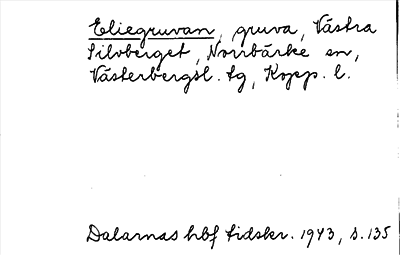 Eliegruvan, gruva, Västra
Silvberget, Norrbärke sn,
Västerbergsl. tg, Kopp. l.
Dalarnas hbf tidskr. 1943, s. 135